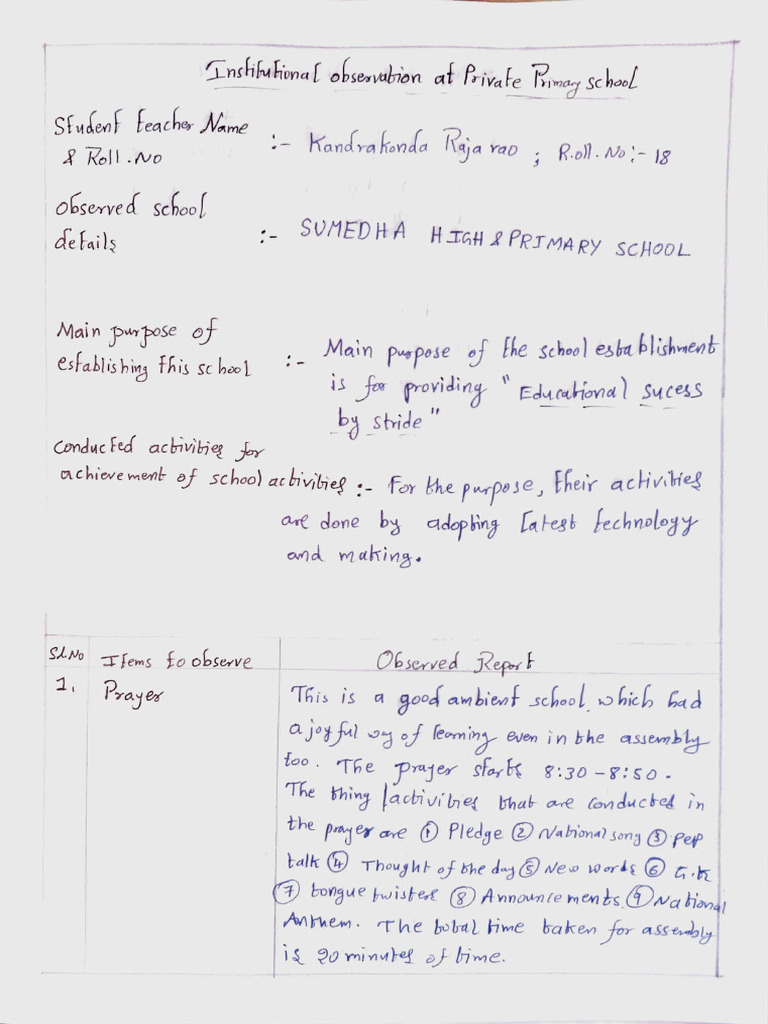 Institutional observation at Private Primary school
Student teacher Name
& Roll.No :- Kandrakonda Raja rao ; Roll.No:- 18
Observed school
details :- SUMEDHA HIGH & PRIMARY SCHOOL
Main purpose of
establishing this school :- Main purpose of the school establishment
is for providing "Educational sucess
by stride"
Conducted activities for
achievement of school activities :- For the purpose, their activities
are done by adopting latest technology
and making.
Sl.No Items to observe Observed Report
1. Prayer This is a good ambient school, which had
a joyful way of learning even in the assembly
too. The prayer starts 8:30-8:50.
The thing/activities that are conducted in
the prayer are ① Pledge ② National song ③ pep
talk ④ Thought of the day ⑤ New words ⑥ G.K
⑦ tongue twisters ⑧ Announcements ⑨ National
Anthem. The total time taken for assembly
is 20 minutes of time.